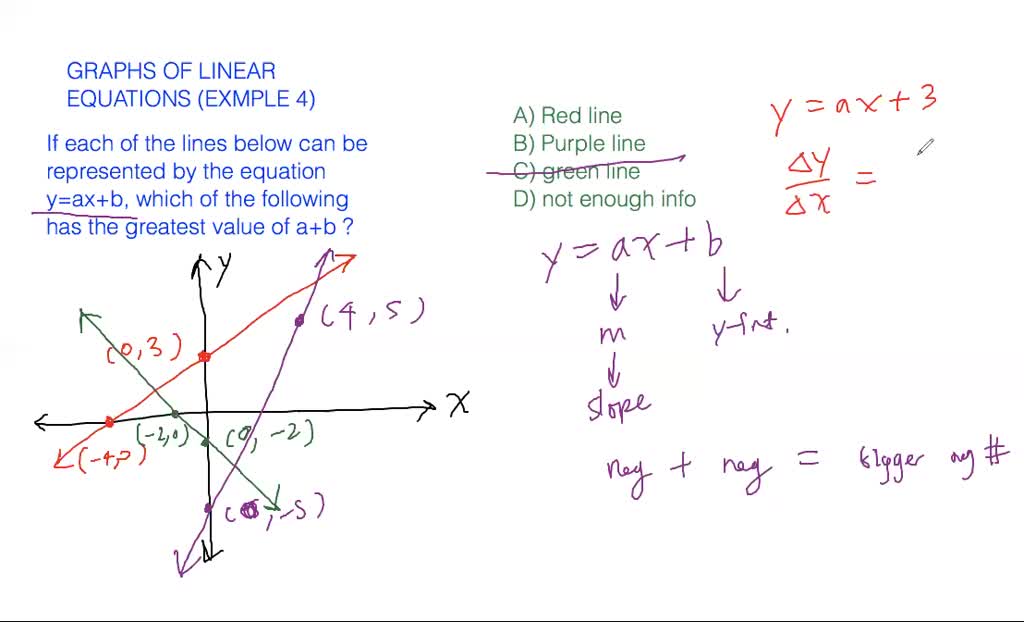 GRAPHS OF LINEAR
EQUATIONS (EXMPLE 4)
If each of the lines below can be
represented by the equation
y=ax+b, which of the following
has the greatest value of a+b ?
A) Red line
B) Purple line
C) green line
D) not enough info
y = ax + 3
Δy
Δx =
y = ax + b
m
y-int.
slope
neg + neg =
#
y
(4, 5)
(0, 3)
x
(-2,0)
(0, -2)
(-4,0)
(0, -5)